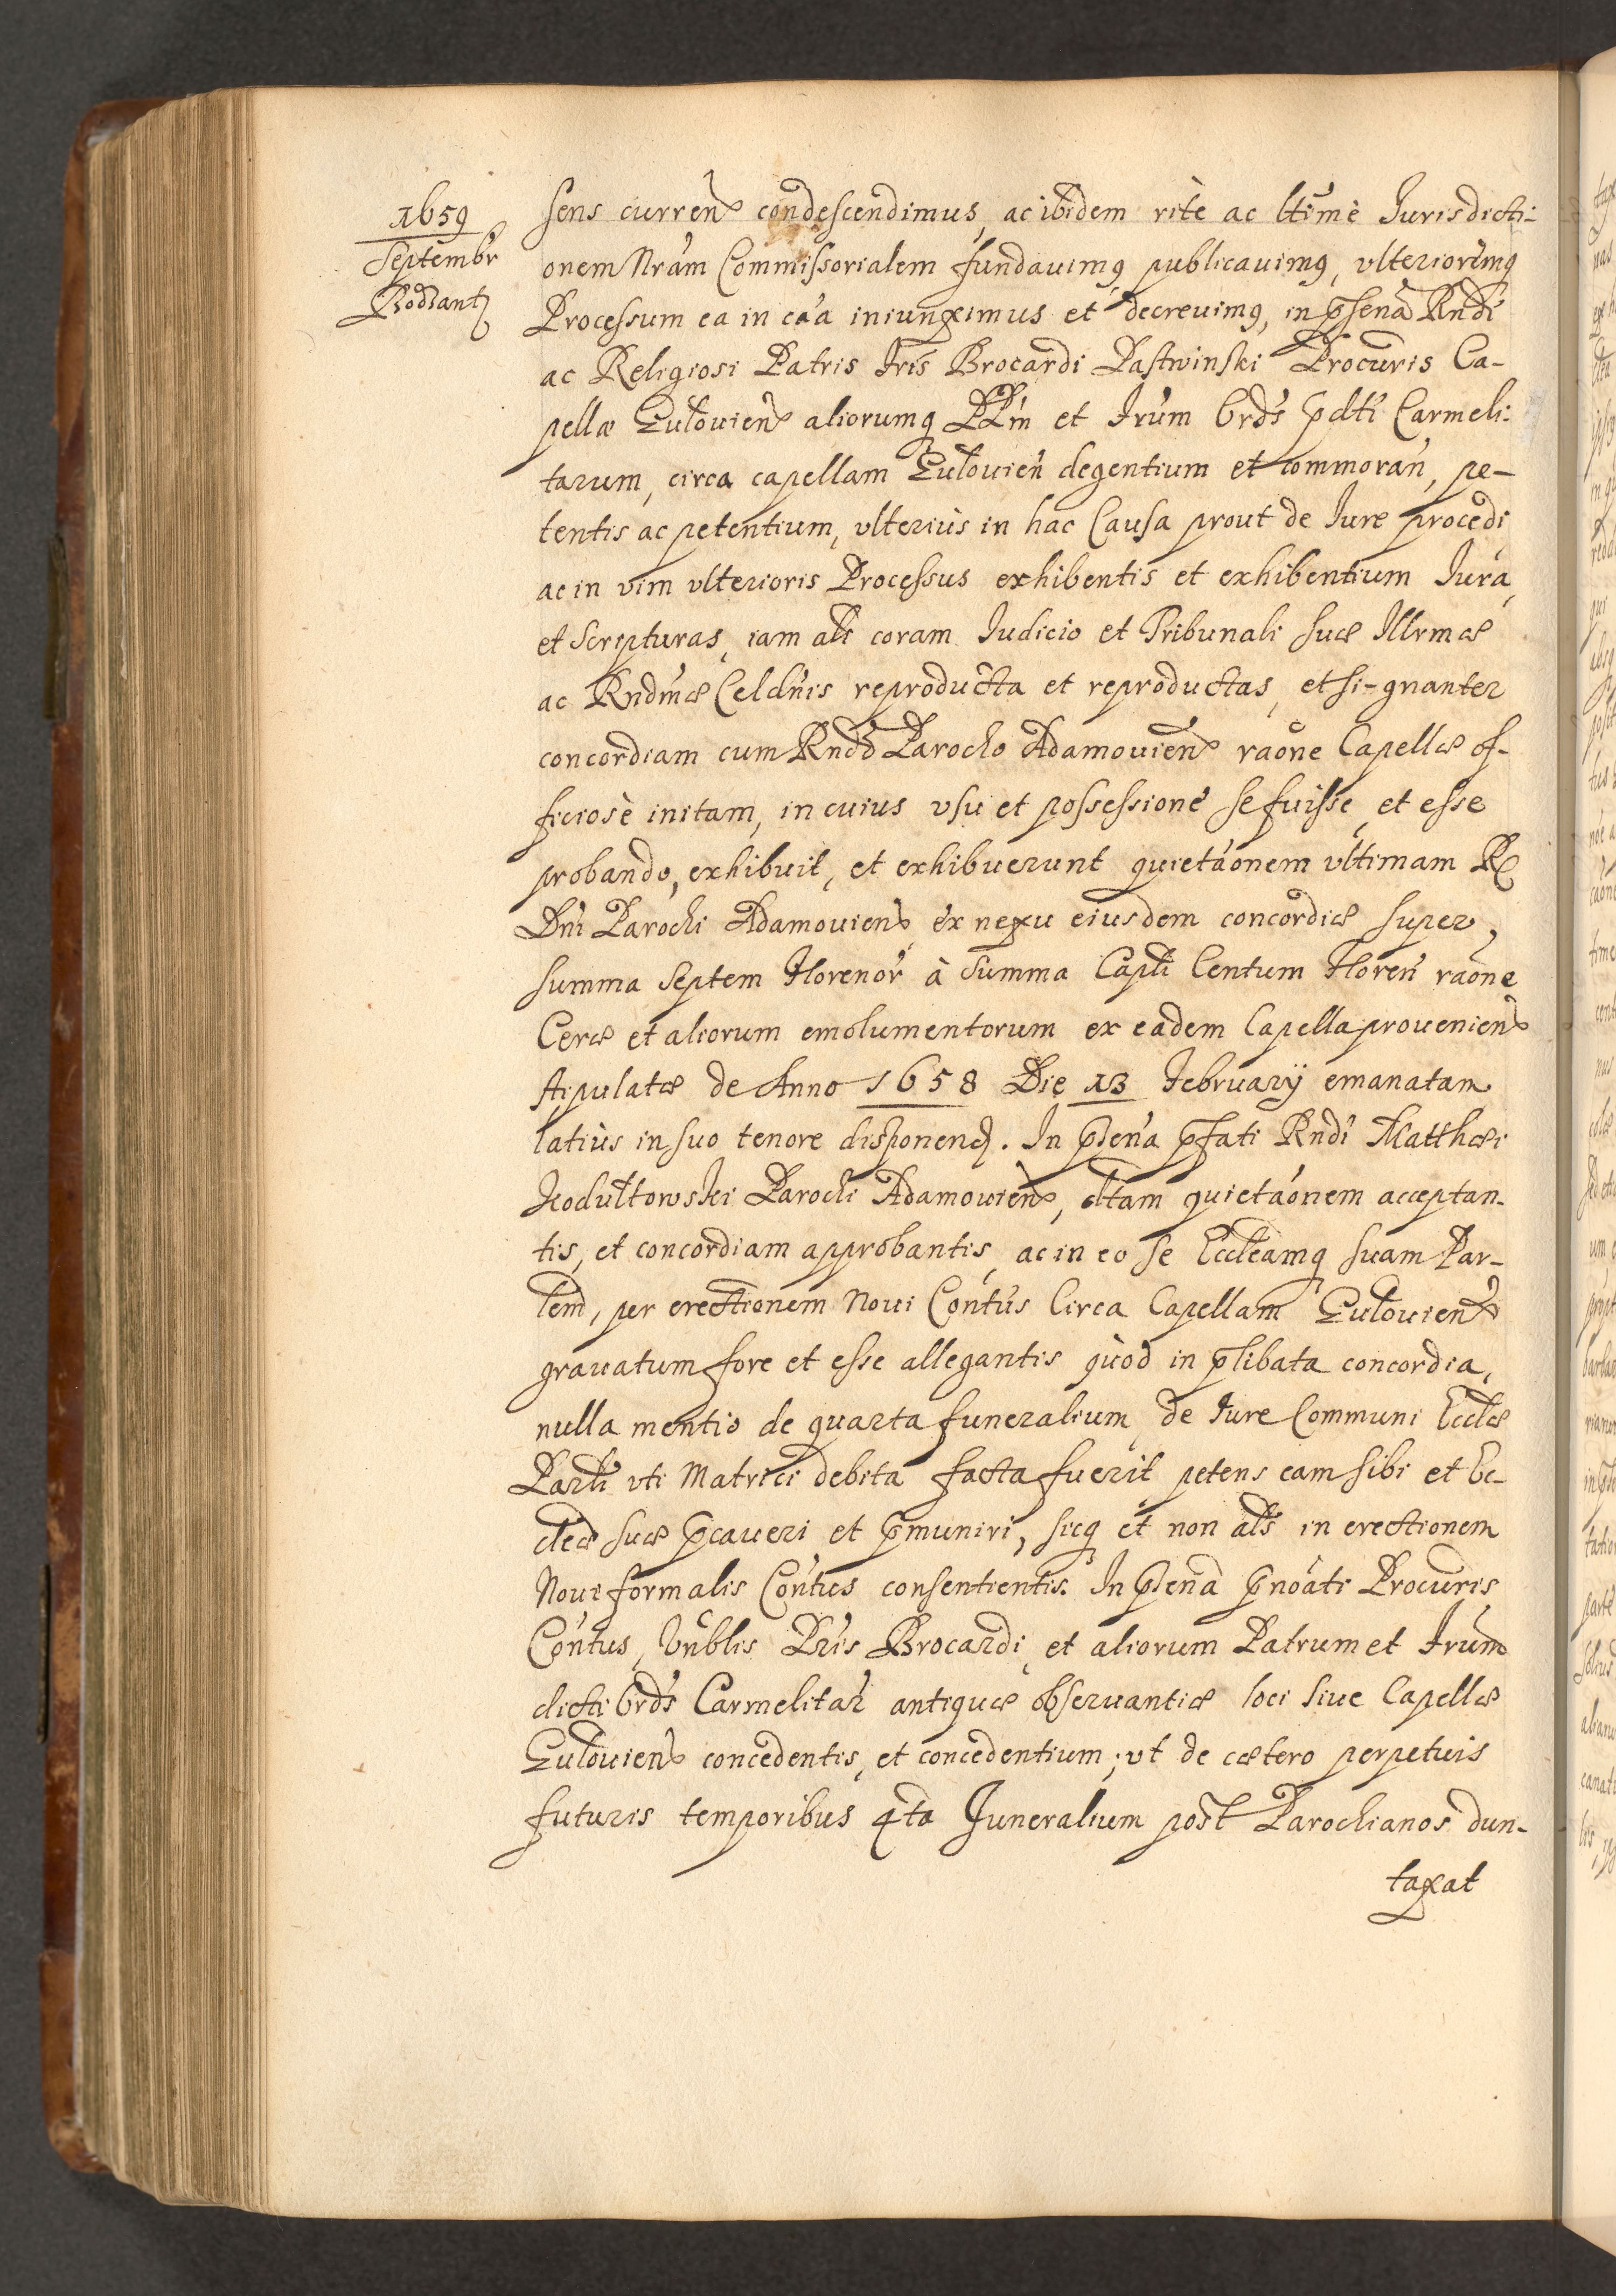 1659
Septembr
Rodzantz
sens curren condescendimus, ac ibidem ritè ac ltimè Iurisdicti-
onem Nram Commissorialem fundauimq publicauimq, vlteriorēmq
Processum ea in cäa iniunximus et decreuimq, in p̄sena Rndi
ac Religiosi Patris Fris Brocardi Pastwinski Procuris Ca-
pellæ Gułouien aliorumq PPm et Frum Ordis pdti Carmeli-
tarum, circa capellam Gułouien degentium et commoran, pe-
tentis ac petentium, vlteriùs in hac Causa prout de Iure procedi
ac in vim vlterioris Processus exhibentis et exhibentium Iura,
et Scripturas, iam als coram Iudicio et Tribunali suæ Illrmæ
ac Rndmæ Celdnis reproducta et reproductas, et si-gnanter
concordiam cum Rndo Parocho Adamouien raone Capellæ of-
ficiosè initam, in cuius vsu et possessione se fuisse et esse
probando, exhibuit, et exhibuerunt quietaonem vltimam R
Dni Parochi Adamouien ex nexu eiusdem concordiæ super,
summa Septem Florenor à Summa Capli Centum Floren raone
Ceræ et aliorum emolumentorum ex eadem Capella prouenien
stipulatæ de Anno 1658 Die 13 February emanatam
latiùs in suo tenore disponen. In p̄sena p̄fati Rndi Matthæi
Kodułtowski Parochi Adamouien, dtam quietaonem acceptan-
tis, et concordiam approbantis, ac in eo se Eccleamq suam Par-
lem, per erectionem Noui Contus Circa Capellam Gułouien
grauatum fore et esse allegantis quòd in p̄libata concordia,
nulla mentio de quarta funeralium, de Iure Communi Ecclæ
Parli vti Matrici debita facta fuerit petens eam sibi et Ec-
cleæ suæ p̄caueri et p̄muniri, sicq et non als in erectionem
Noui formalis Contus consentientis. In p̄sena p̄noati Procuris
Contus, Vnblis Pris Brocardi, et aliorum Patrum et Frum
dicti Ordis Carmelitar antiquæ obseruantiæ loci siue Capellæ
Gułouien concedentis, et concedentium; vt de cætero perpetuis
futuris temporibus 4ta Funeralium post Parochianos dun-
taxat